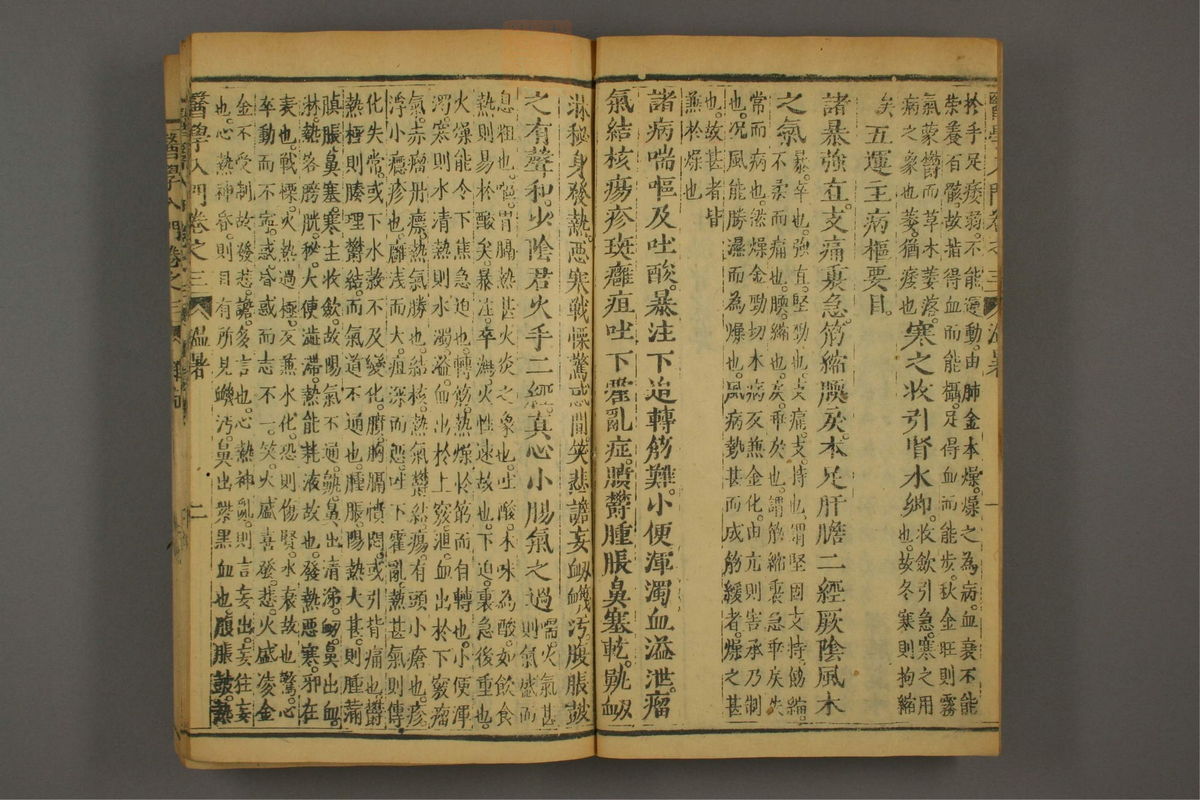 醫學入門卷之三 溫暑 一
於手足痿弱。不能運動。由肺金本燥。燥之為病。血衰不能
榮養百骸。故指得血而能攝。足得血而能步。秋金旺則霧
氣蒙欝。而草木萎落。
病之象也。萎。猶痿也。
寒之收引腎水鄉。
收斂引急。寒之用
也。故冬寒則拘縮
矣
五運主病樞要目。
諸暴強直。支痛裏急。筋縮戾。本足肝膽二經。厥陰風木
之氣
暴。卒也。強直。堅勁也。支痛。支持也。謂堅固支持。筋縮
不柔而痛也。縮也。戾。乖戾也。謂筋縮裏急。乖戾失
常而病也。然燥金勁切。木病反兼金化。由亢則害。承乃制
也。况風能勝濕而為燥也。風病勢甚而成筋緩者。燥之甚
也。故甚者皆
兼於燥也
諸病喘嘔及吐酸。暴注下迫轉筋難。小便渾濁血溢泄。瘤
氣結核瘍疹斑。癰疽吐下霍亂症。膹欝腫脹鼻塞乾。鼽衂
淋秘身發熱。惡寒戰慄驚惑間。笑悲譫妄衂衊汚。腹脹鼓
之有聲和。少陰君火手二經。真心小腸氣之過
喘。火氣甚
則氣盛而
息粗也。嘔。胃膈熱甚。火炎之象也。吐酸。木味為酸。如飲食
熱則易於酸矣。暴注。卒瀉。火性速故也。下迫。裏急後重也。
火燥能令下焦急迫也。轉筋。熱燥於筋而自轉也。小便渾
濁。寒則水清。熱則水濁。溢。血出於上竅。泄。血出於下竅。瘤
氣。赤瘤丹熛。熱氣勝也。結核。熱氣欝結。瘍。有頭小瘡也。疹
浮小癮疹也。癰。淺而大。疽。深而惡。吐下霍亂。熱甚氣則傳
化失常。或下水穀不及變化。膹。胸膈憤悶。或引背痛也。欝。
熱極則腠理欝結而氣道不通也。腫脹。陽熱大甚。則腫滿
䐜脹。鼻塞。寒主收斂。故陽氣不通。鼽。鼻出清涕。衂。鼻出血。
淋。熱客膀胱。秘。大便澁滯。熱能耗液故也。發熱惡寒。邪在
表也。戰慄。火熱過極。反兼水化。恐則傷腎。水衰故也。驚。心
卒動而不寧。惑。昏惑而志不一。笑。火盛喜發。悲。火盛凌金。
金不受制。故發悲。譫。多言也。心熱神亂。則言妄出。妄。狂妄
也。心熱神昏。則目有所見。衊汚。鼻出瘀黑血也。腹脹鼓。熱
醫學入門卷之三 溫暑 二